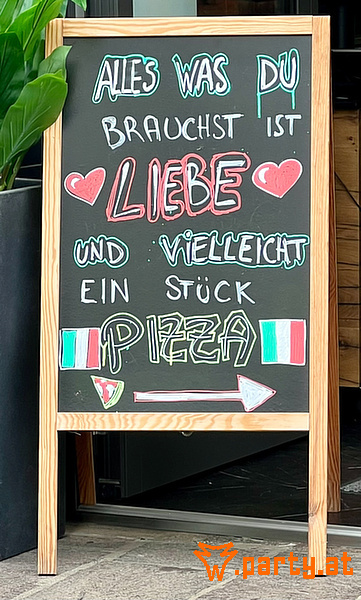 ALLES WAS DU
BRAUCHST IST
LIEBE
UND VIELLEICHT
EIN STÜCK
PIZZA
.party.at